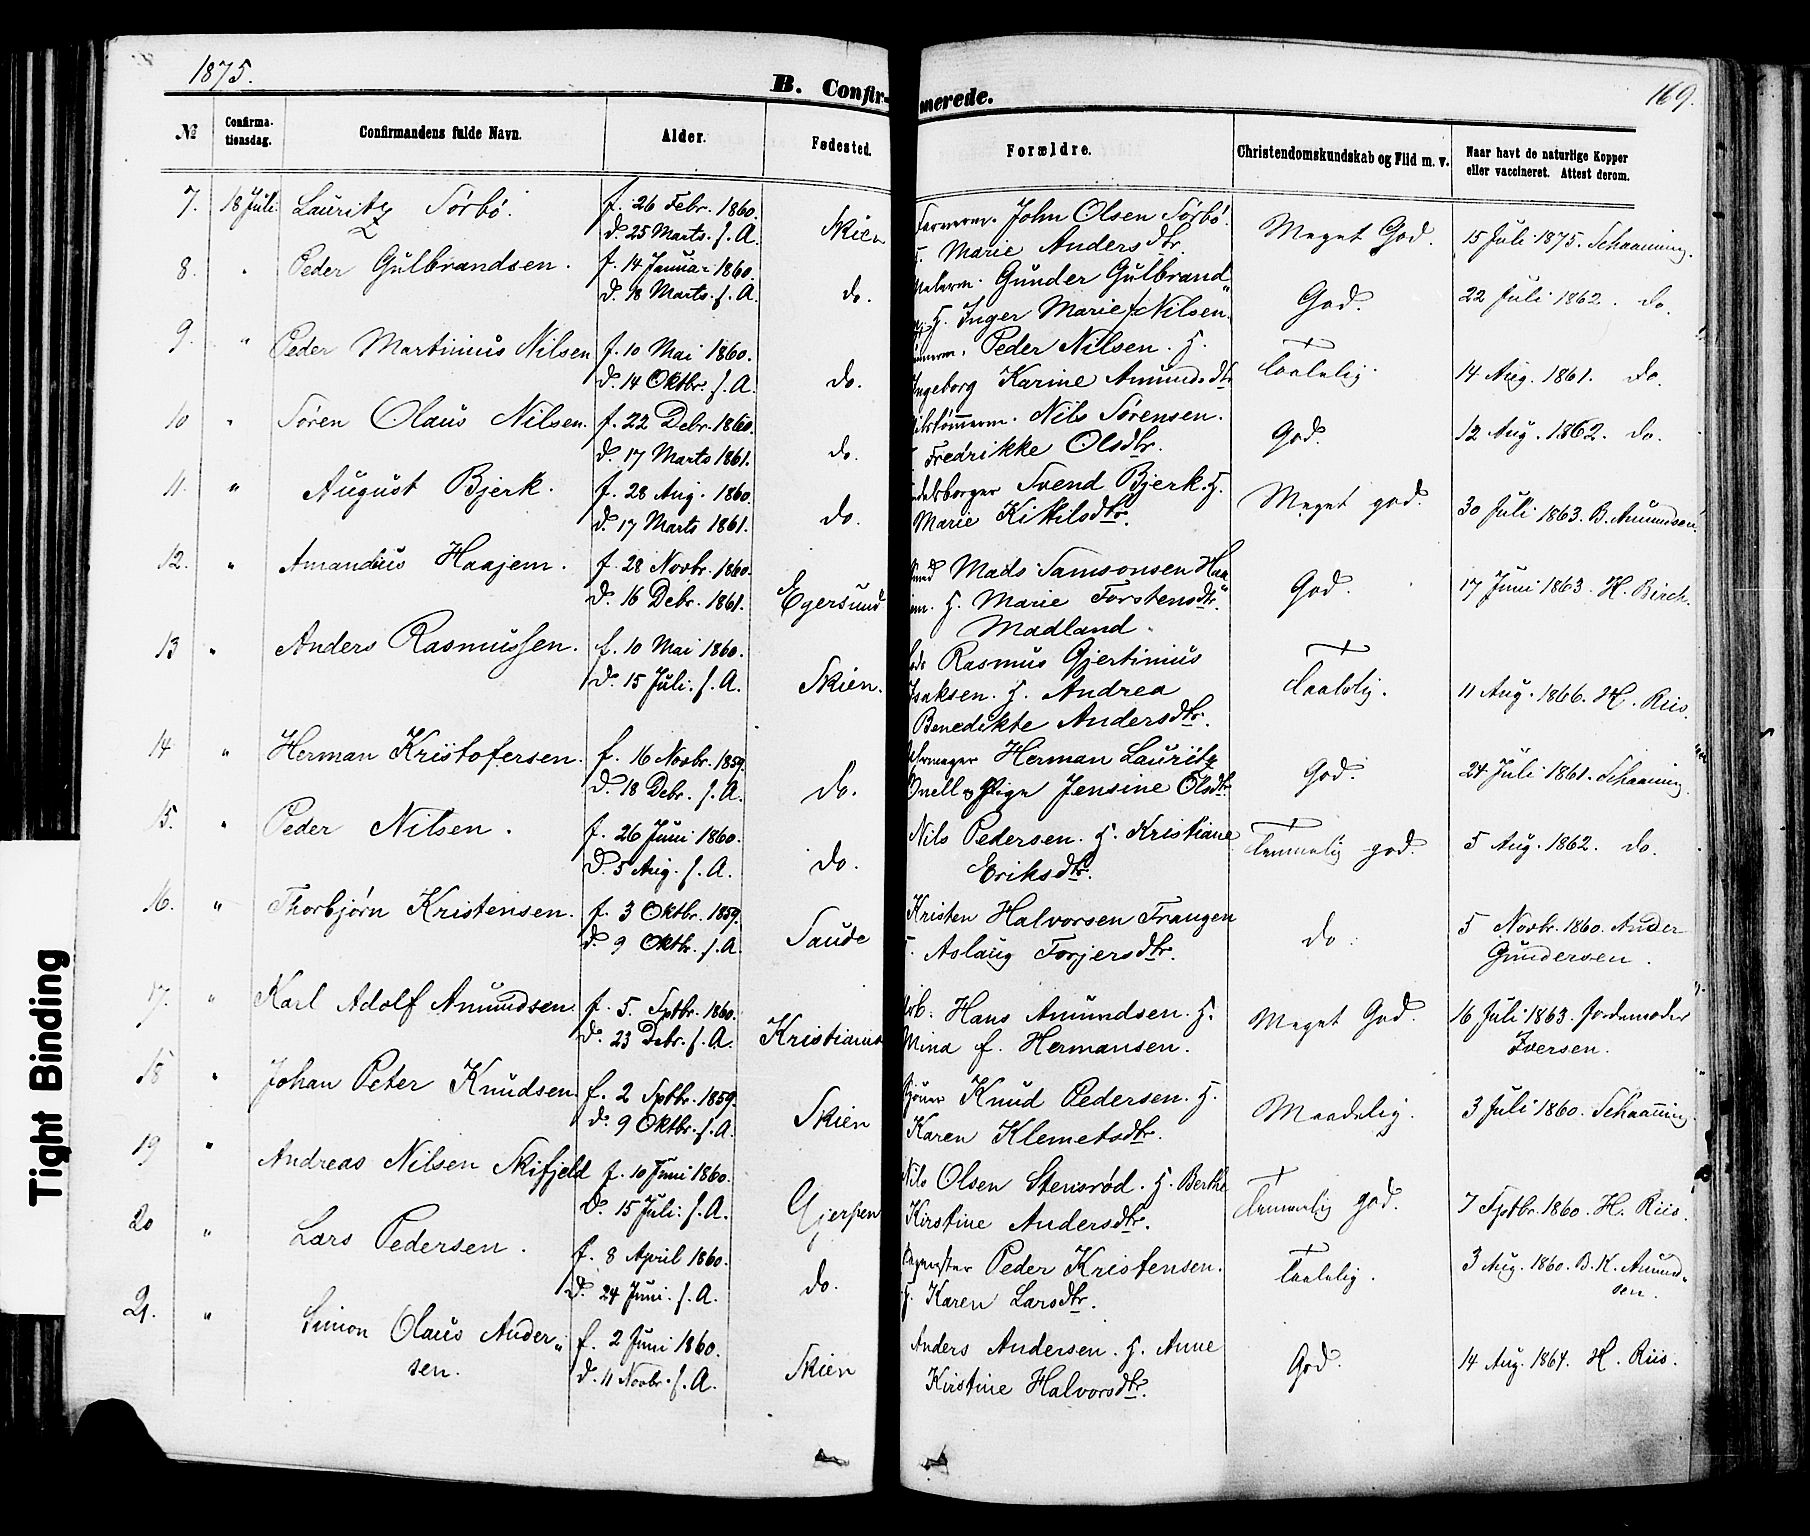 1875.
B. Confir-
merede.
169.
№
Confirma-
tionsdag.
Confirmandens fulde Navn.
Alder.
Fødested.
Forældre.
Christendomskundskab og Flid m. v.
Naar havt de naturlige Kopper
eller vaccineret. Attest derom.
7. 18 Juli. Lauritz Sörbö. f. 26 Febr. 1860. Skien John Olsen Sörbö. Meget God. 15 Juli 1875. Schaanning.
d. 25 Marts. s. A. Marie Andersdtr.
8. " Peder Gulbrandsen. f. 14 Januar 1860. do. Gunder Gulbrand„ God. 22 Juli 1862. do.
d. 18 Marts. s. A. H. Inger Marie f. Nilsen.
9. " Peder Martinius Nilsen f. 10 Mai 1860. do. Peder Nilsen. H. Taalelig. 14 Aug. 1861. do.
d. 14 Oktbr. s. A. Ingeborg Karine Amundsdtr
10 " Sören Olaus Nilsen. f. 22 Debr. 1860. do. Nils Sörensen. God. 12 Aug. 1862. do.
d. 17 Marts 1861. Fredrikke Olsdtr.
11. " August Bjerk. f. 28 Aug. 1860. do. Svend Bjerk. H. Meget god. 30 Juli 1863. B. Amundsen.
d. 17 Marts 1861. Marie Kittilsdtr.
12. " Amandus Haajem. f. 28 Novbr. 1860. Egersund Mads Samsonsen Haa„ God. 17 Juni 1863. H. Birch.
d. 16 Debr. 1861. H. Marie Torstensdtr.
Madland.
13 " Anders Rasmussen. f. 10 Mai 1860. Skien. Rasmus Gjertinius Taalelig. 11 Aug. 1866. H. Riis.
d. 15 Juli. s. A. Isaksen. H. Andrea
Benedikte Andersdtr.
14 " Herman Kristofersen. f. 16 Novbr. 1859. do. Herman Lauritz God. 24 Juli 1861. Schaanning.
d. 18 Debr. s. A. Onell & Pige Jensine Olsdtr.
15. " Peder Nilsen. f. 26 Juni 1860. do. Nils Pedersen. H. Kristiane Temmelig god. 5 Aug. 1862. do.
d. 5 Aug. s. A. Eriksdtr.
16. " Thorbjörn Kristensen. f. 3 Oktbr. 1859. Saude Kristen Halvorsen Trangen do. 5 Novbr. 1860. Ander
d. 9 Oktbr. s. A. Aslaug Torjersdtr. Gundersen.
17. " Karl Adolf Amundsen. f. 5. Sptbr. 1860. Kristiania Hans Amundsen. H. Meget God. 16 Juli 1863. Jordemoder
d. 23 Debr. s. A. Mina f. Hermansen. Iversen.
18 " Johan Peter Knudsen f. 2 Sptbr. 1859. Skien Knud Pedersen. H. Maadelig. 3 Juli 1860. Schaanning.
d. 9 Oktbr. s. A. Karen Klemetsdtr.
19 " Andreas Nilsen Skifjeld f. 10 Juni 1860. Gjerpen Nils Olsen Stensröd. H. Berthe Temmelig god. 7 Sptbr. 1860. H. Riis.
d. 15 Juli. s. A. Kirstine Andersdtr.
20 " Lars Pedersen. f. 8 April 1860. do. Peder Kristensen. Taalelig. 3 Aug. 1860. B. K. Amund„
d. 24 Juni. s. A. H. Karen Larsdtr. sen.
21. " Simon Olaus Ander„ f. 2 Juni 1860. Skien Anders Andersen. H. Anne God. 14 Aug. 1864. H. Riis.
sen. d. 11 Novbr. s. A. Kirstine Halvorsdtr.
Tight Binding